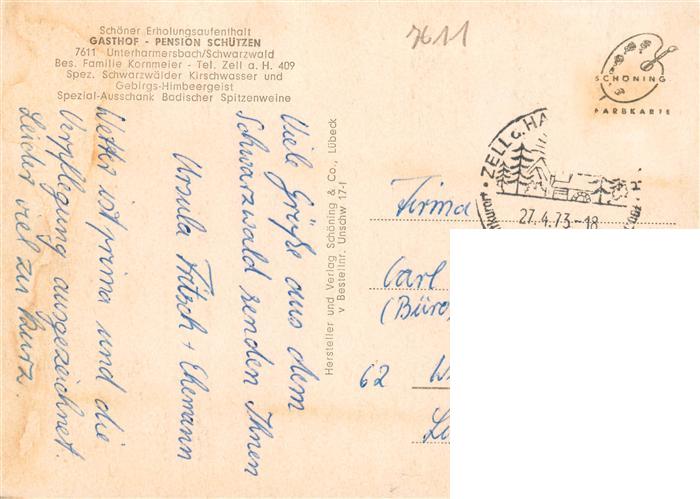 Schöner Erholungsaufenthalt
GASTHOF - PENSION SCHÜTZEN
7611 Unterharmersbach/Schwarzwald
Bes. Familie Kornmeier - Tel. Zell a. H. 409
Spez. Schwarzwälder Kirschwasser und
Gebirgs-Himbeergeist
Spezial-Ausschank Badischer Spitzenweine
Viele Grüße aus dem
Schwarzwald senden Ihnen
Ursula Fritsch + Ehemann
Wetter ist prima und die
Verpflegung ausgezeichnet.
Leider viel zu kurz.
Hersteller und Verlag Schöning & Co., Lübeck
v Bestellnr. Unschw 17-f
7611
SCHÖNING
FARBKARTE
ZELL a. HA
27.4.73-18
Firma
Carl
(Büro
62 W